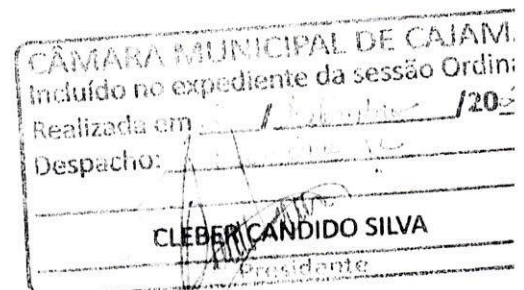 CÂMARA MUNICIPAL DE CAJAM
Incluído no expediente da sessão Ordina
Realizada em / /20
Despacho:
CLEBER CANDIDO SILVA
Presidente